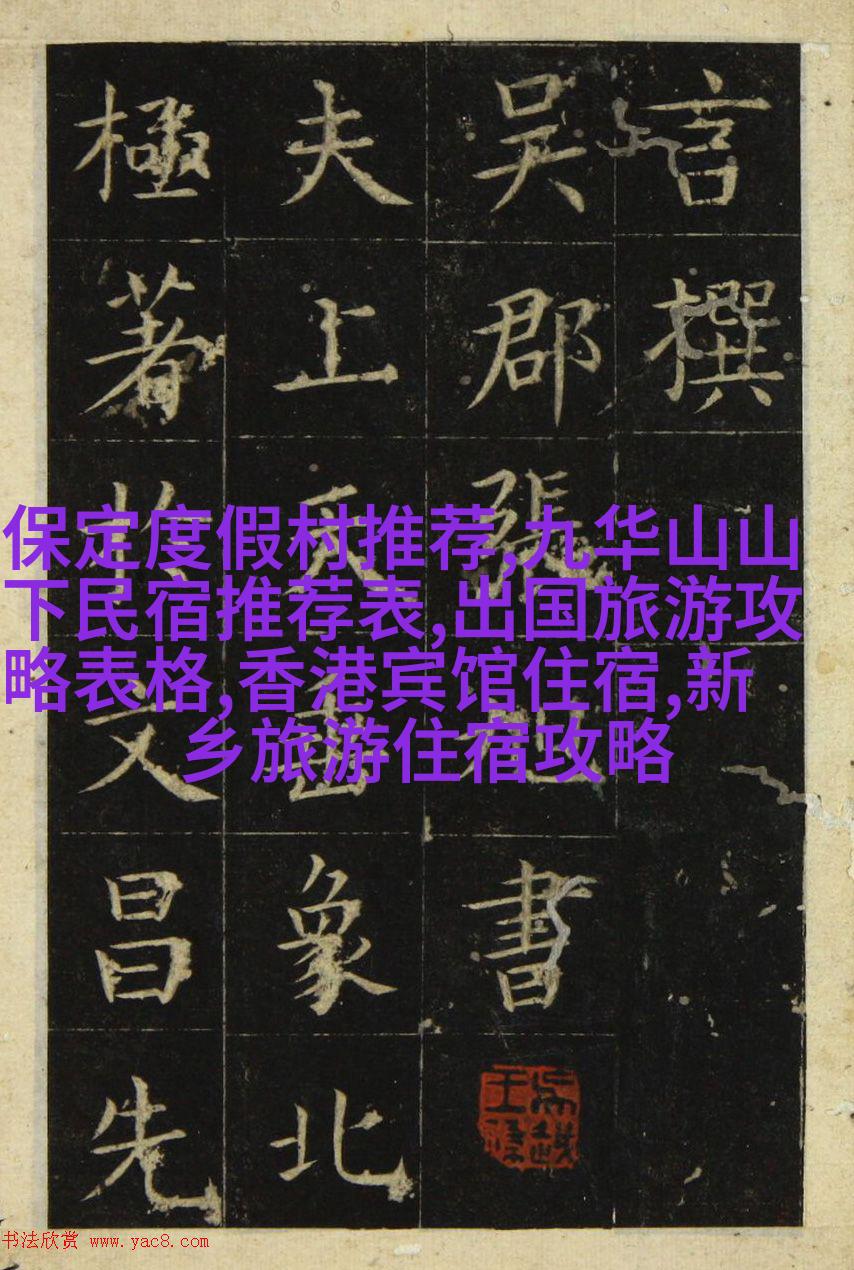 言撰
吳郡張書
夫上垂象北
極著扵文昌先
保定度假村推荐,九华山山
下民宿推荐表,出国旅游攻
略表格,香港宾馆住宿,新
乡旅游住宿攻略
书法欣赏 www.yac8.com